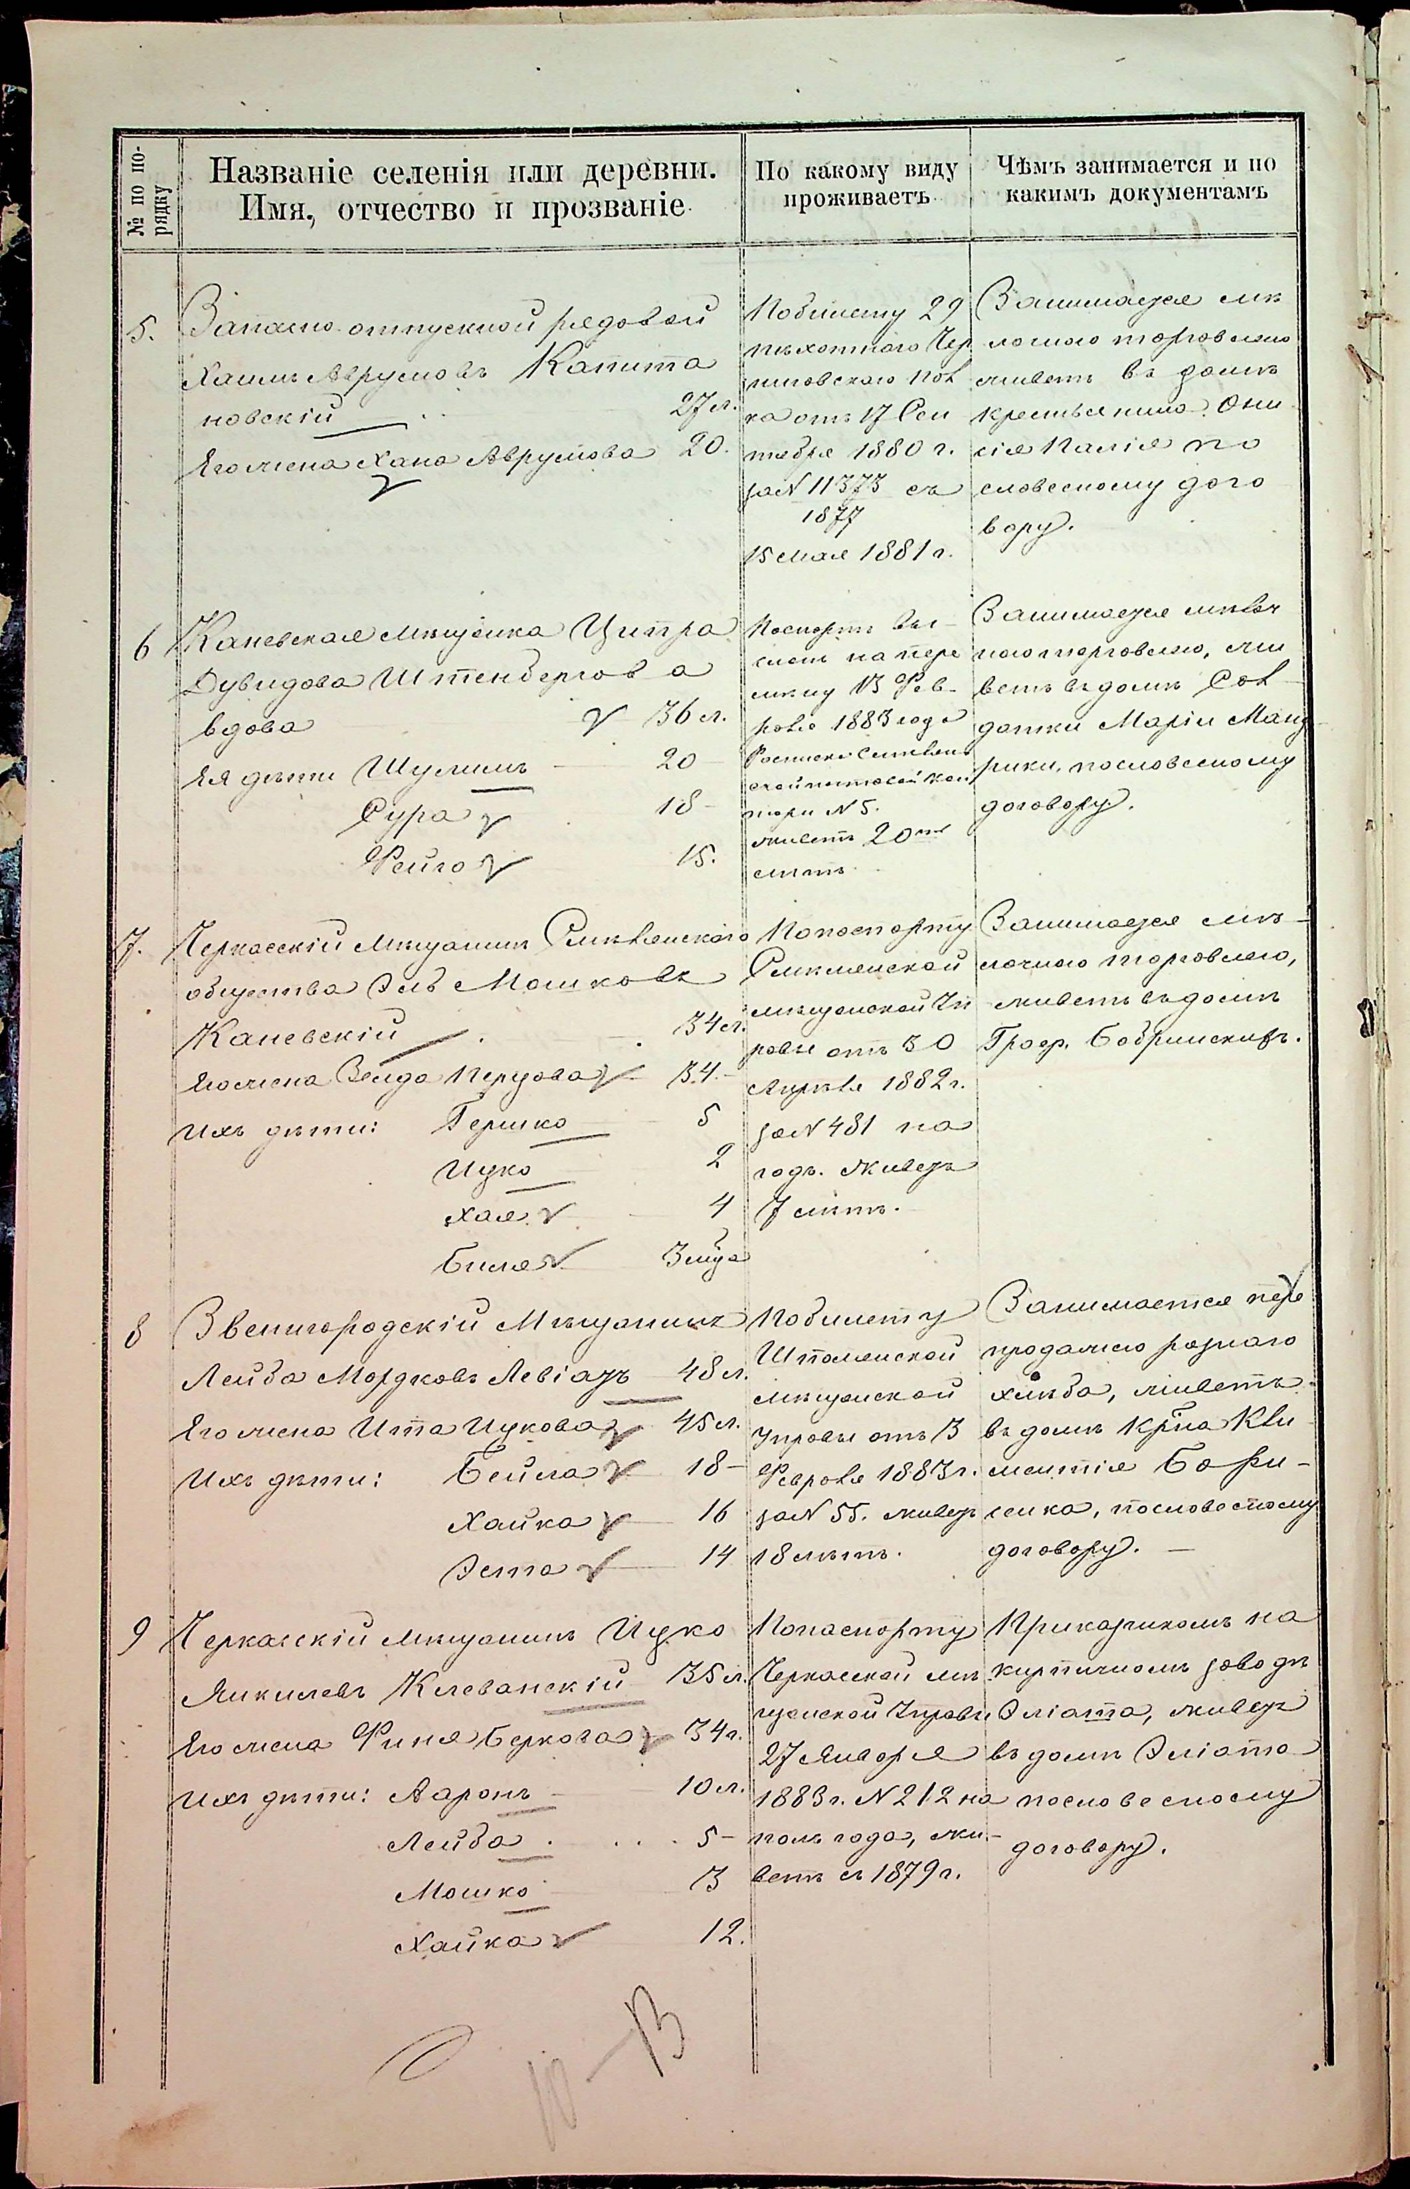 № по по-
рядку
Названіе селенія или деревни.
Имя, отчество и прозваніе
По какому виду
проживаетъ
Чѣмъ занимается и по
какимъ документамъ
5.
Запасно отпускной рядовой
Хаимъ Аврумовъ Капита
новскій 27 л.
Его жена Хана Аврумова 20.
По билету 29
пѣхотнаго Чер
ниговскаго пол
ка отъ 17 Сен
тября 1880 г.
за N 11373 съ
1877
15 Мая 1881 г.
Занимается мѣ
лочною торговлею
живетъ въ домѣ
крестьянина Они
сія Палія по
словесному дого
вору.
6
Каневская мѣщанка Ципра
Дувидова Штенбергова
вдова 36 л.
Ея дѣти Шулимъ 20
Сура 18
Фейга 15.
Паспортъ вы
сланъ на пере
мѣну 13 Фев
раля 1883 года
Росписка Смѣлян
ской почтовой кон
торы N 5.
живетъ 20ть
лѣтъ
Занимается мѣлоч
ною торговлею, жи
ветъ въ домѣ Сол
датки Маріи Манд
рики, по словесному
договору.
7.
Черкасскій мѣщанинъ Смѣлянскаго
общества Эль Мошковъ
Каневскій 34 л.
Его жена Зельда Перцова 34.
Ихъ дѣти: Гершко 5
Ицко 2
Хая 4
Биля 3 мца
По паспорту
Смѣлянской
мѣщанской Уп
равы отъ 30
Апрѣля 1882 г.
за N 481 на
годъ. Живетъ
7 лѣтъ.
Занимается мѣ-
лочною торговлею,
живетъ въ домѣ
Граф. Бобринскихъ.
8
Звенигородскій Мѣщанинъ
Лейба Мордковъ Левіазъ 48 л.
Его жена Ита Ицкова 45 л.
Ихъ дѣти: Бейла 18
Хайка 16
Эста 14
По билету
Шполянской
мѣщанской
управы отъ 3
Февраля 1883 г.
за N 55. живетъ
18 лѣтъ.
Занимается пере
продажею разнаго
хлѣба, живетъ
въ домѣ крна Кли
ментія Бори-
сенка, по словесному
договору.
9
Черкасскій мѣщанинъ Ицко
Янкилевъ Клеванскій 35 л.
Его жена Финя Беркова 34 г.
Ихъ дѣти: Ааронъ 10 л.
Лейба 5
Мошко 3
Хайка 12.
По паспорту
Черкасской мѣ
щанской Управы
27 Января
1883 г. N 212 на
полъ года, жи-
ветъ съ 1879 г.
Прикащикомъ на
кирпичномъ заводѣ
Эліата, живетъ
въ домѣ Эліата
по словесному
договору.
10 – 13